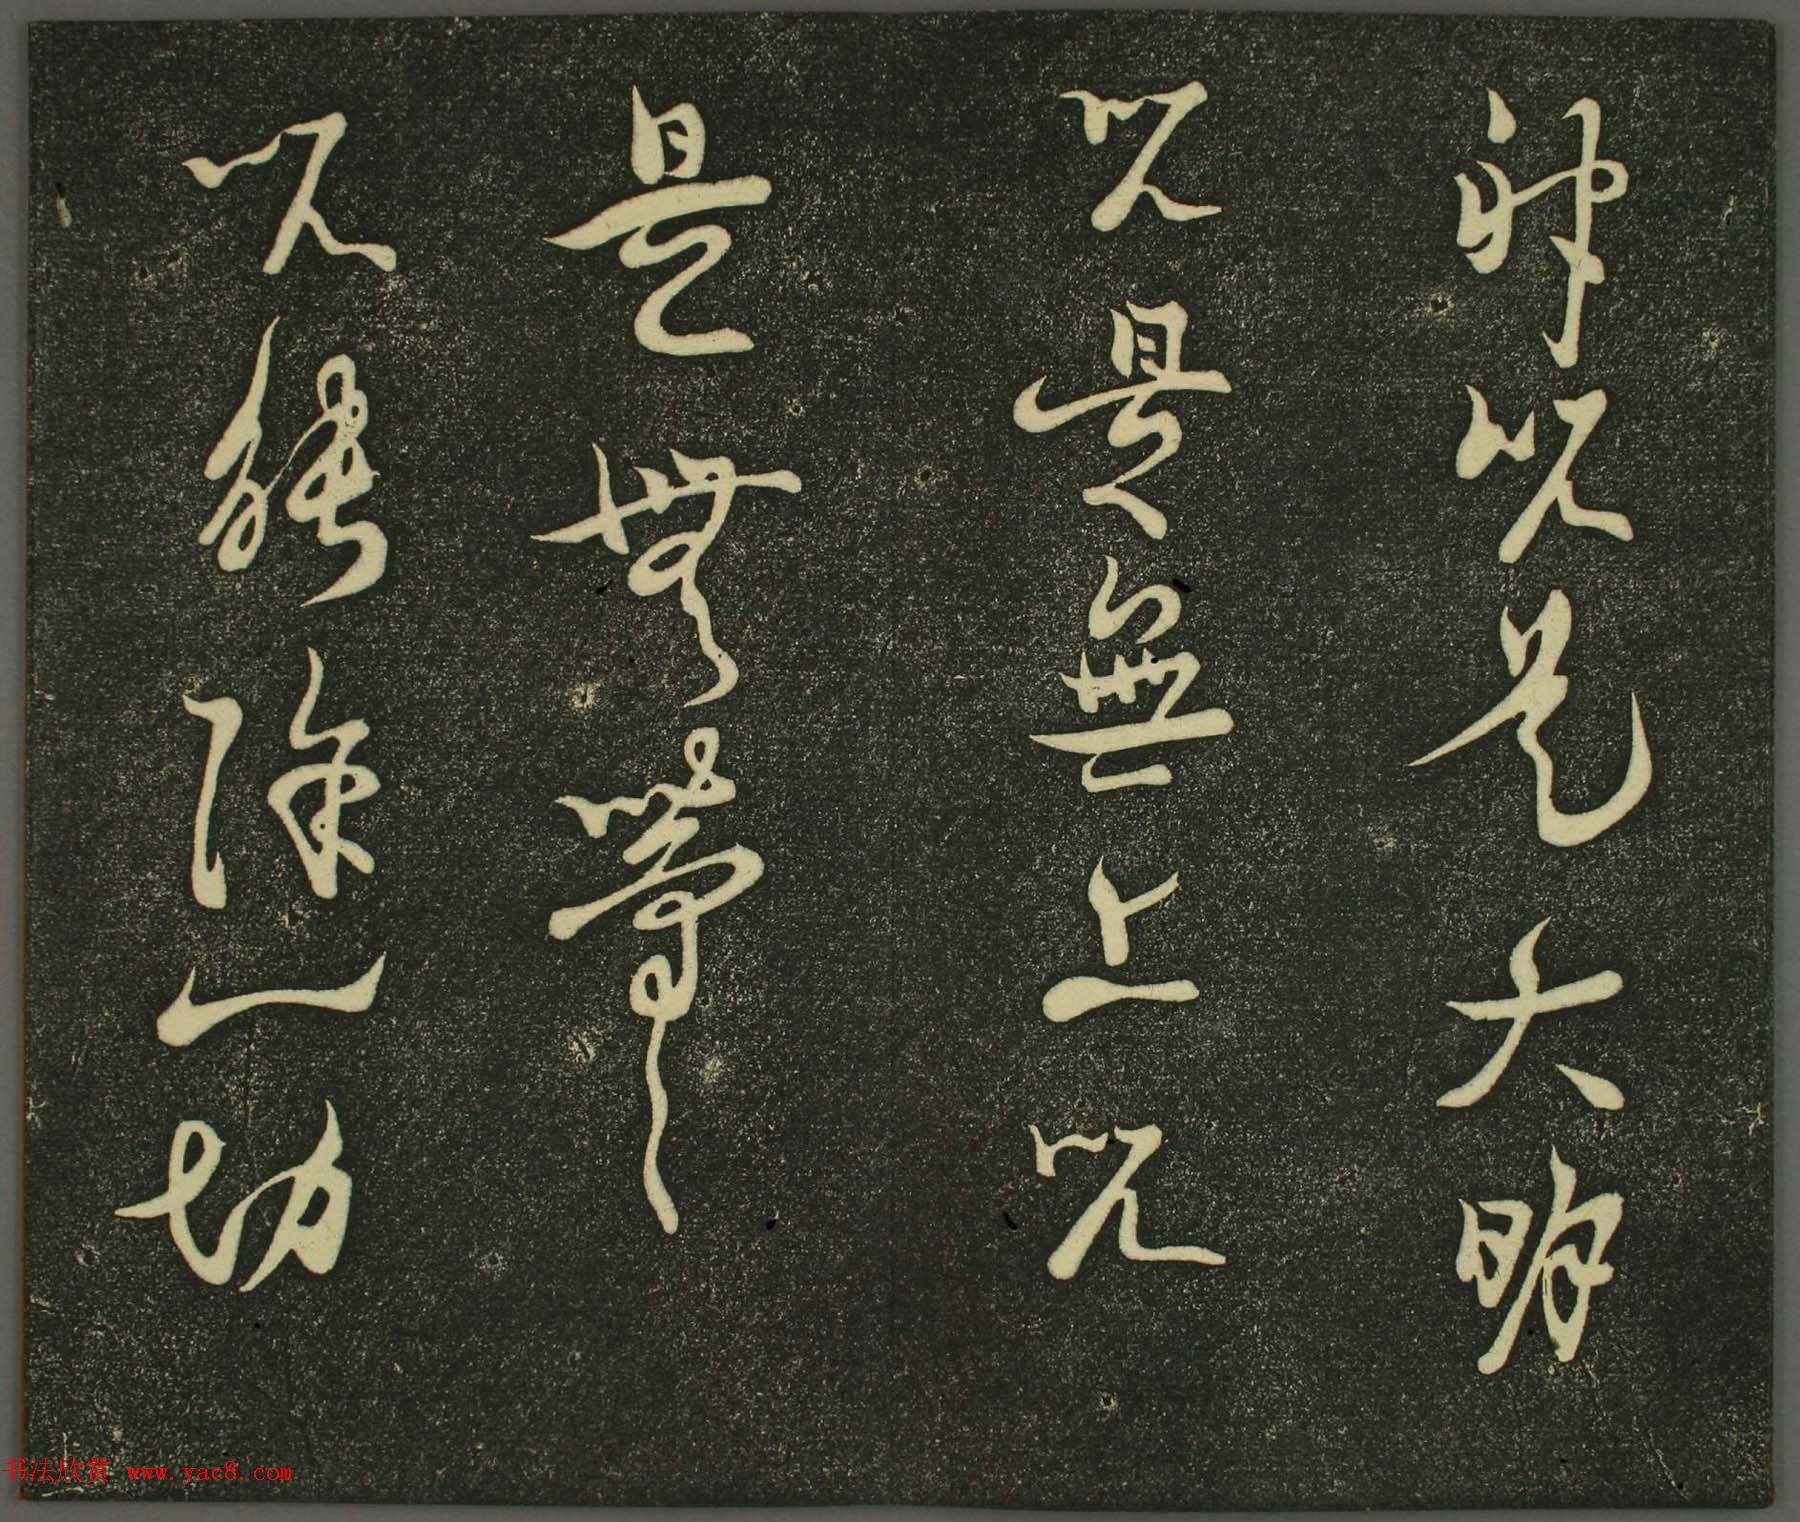 神呪是大明
呪是無上呪
是無等等
呪能除一切
书法欣赏 www.yac8.com